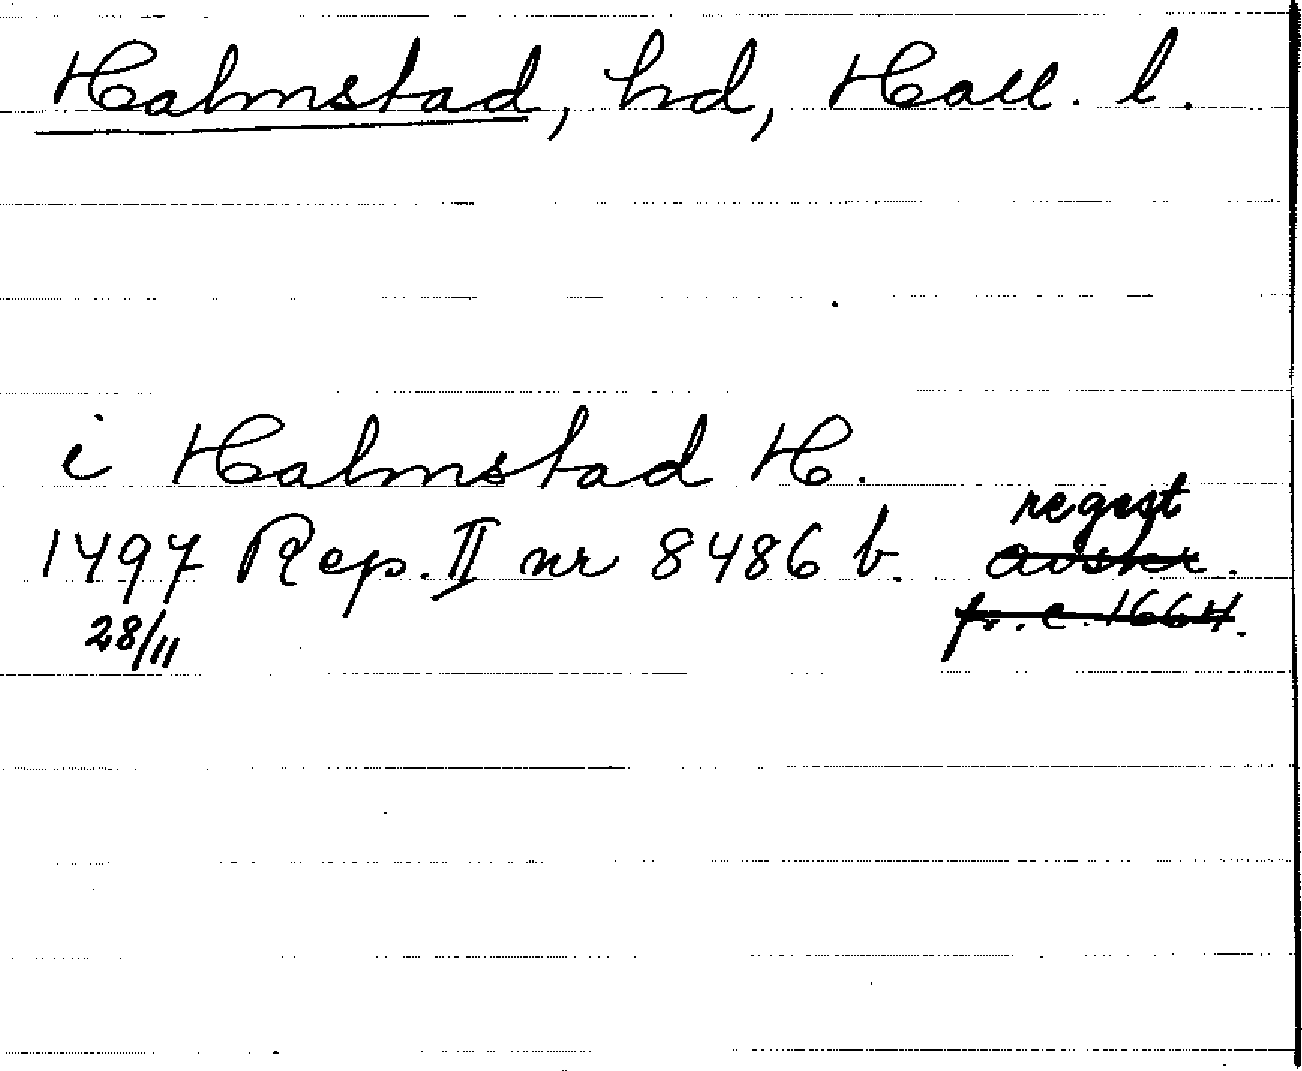 Halmstad, hd, Hall. l.
i Halmstad H.
regest
1497 Rep. II nr 8486 b. avskr.
28/11 fr. c. 1664.